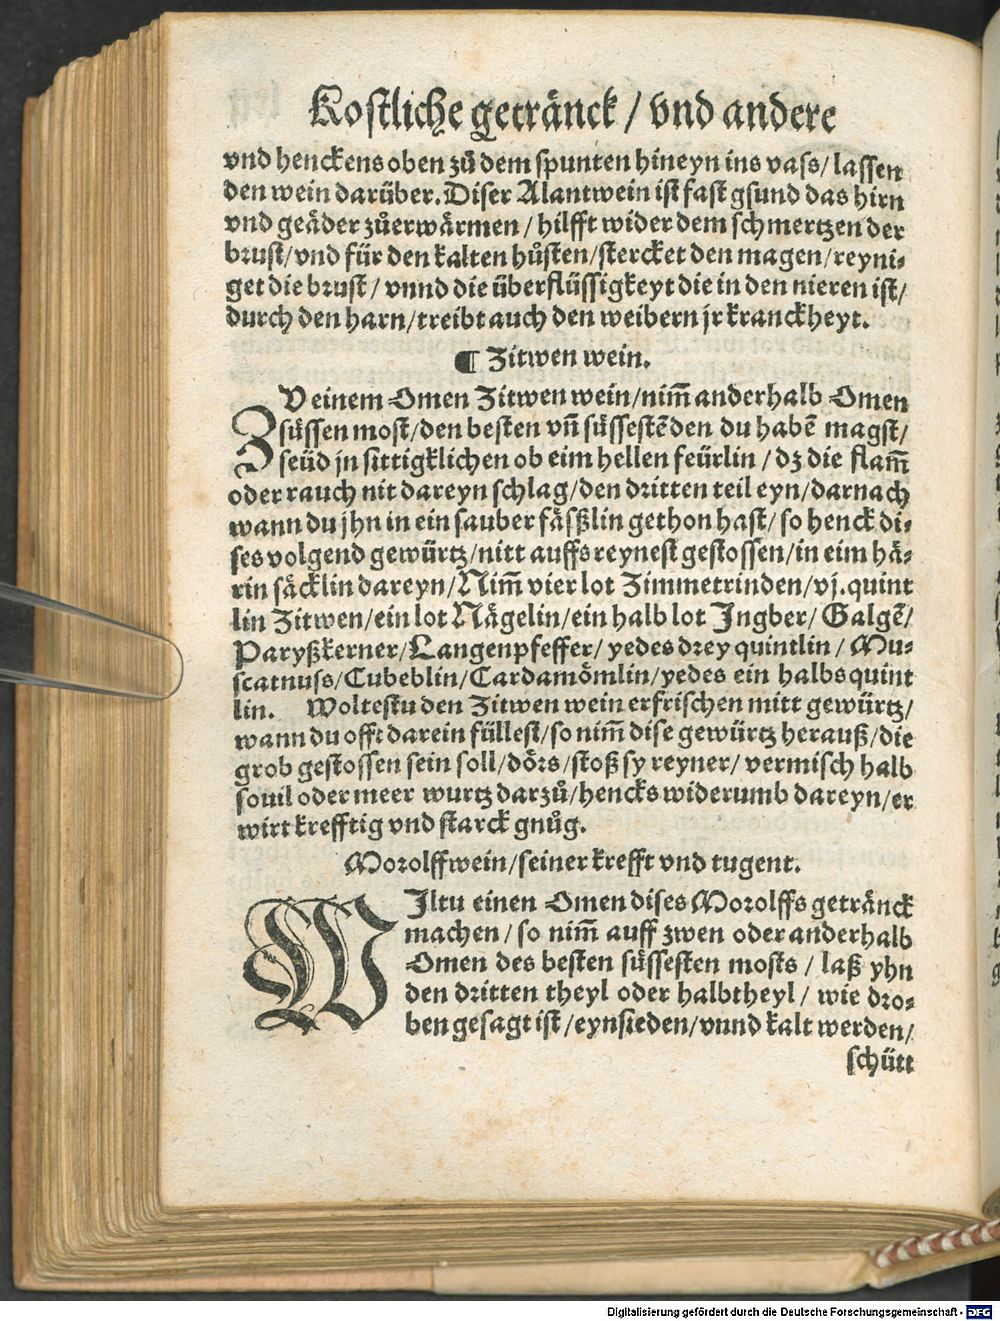 Kostliche getränck / vnd andere
vnd henckens oben zů dem spunten hineyn ins vass / lassen
den wein darüber. Diser Alantwein ist fast gsund das hirn
vnd geäder zůerwärmen / hilfft wider dem schmertzen der
brust / vnd für den kalten hůsten / stercket den magen / reyni-
get die brust / vnnd die überflüssigkeyt die in den nieren ist /
durch den harn / treibt auch den weibern jr kranckheyt.
¶ Zitwen wein.
ZV einem Omen Zitwen wein / nim̃ anderhalb Omen
süssen most / den besten vñ süssestẽ den du habẽ magst /
seüd jn sittigklichen ob eim hellen feürlin / dz die flam̃
oder rauch nit dareyn schlag / den dritten teil eyn / darnach
wann du jhn in ein sauber fäsßlin gethon hast / so henck di-
ses volgend gewürtz / nitt auffs reynest gestossen / in eim hä-
rin säcklin dareyn / Nim̃ vier lot Zimmetrinden / vj. quint
lin Zitwen / ein lot Nägelin / ein halb lot Jngber / Galgẽ /
Paryßkerner / Langenpfeffer / yedes drey quintlin / Mu-
scatnuss / Cubeblin / Cardamömlin / yedes ein halbs quint
lin. Woltestu den Zitwen wein erfrischen mitt gewürtz /
wann du offt darein füllest / so nim̃ dise gewürtz herauß / die
grob gestossen sein soll / dörs / stoß sy reyner / vermisch halb
souil oder meer wurtz darzů / hencks widerumb dareyn / er
wirt krefftig vnd starck gnůg.
Morolffwein / seiner krefft vnd tugent.
WJltu einen Omen dises Morolffs getränck
machen / so nim̃ auff zwen oder anderhalb
Omen des besten süssesten mosts / laß yhn
den dritten theyl oder halbtheyl / wie dro-
ben gesagt ist / eynsieden / vnnd kalt werden /
schütt
Digitalisierung gefördert durch die Deutsche Forschungsgemeinschaft - DFG